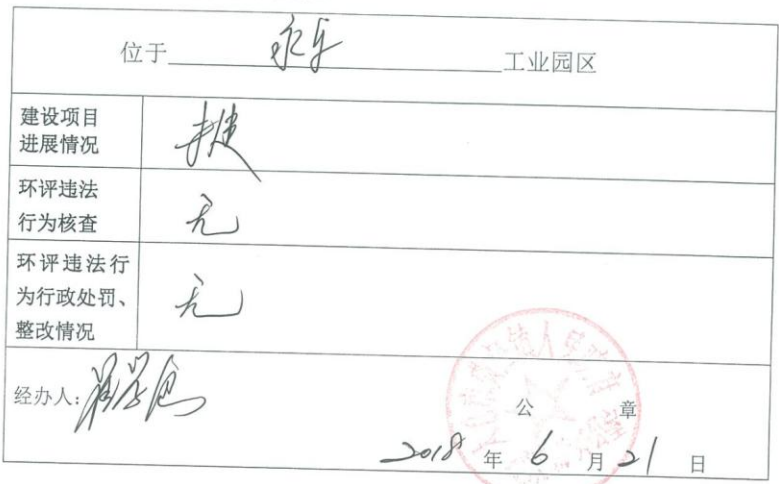 位于 永乐 工业园区
建设项目
进展情况
未建
环评违法
行为核查
无
环评违法行
为行政处罚、
整改情况
无
经办人:
公 章
2018 年 6 月 21 日